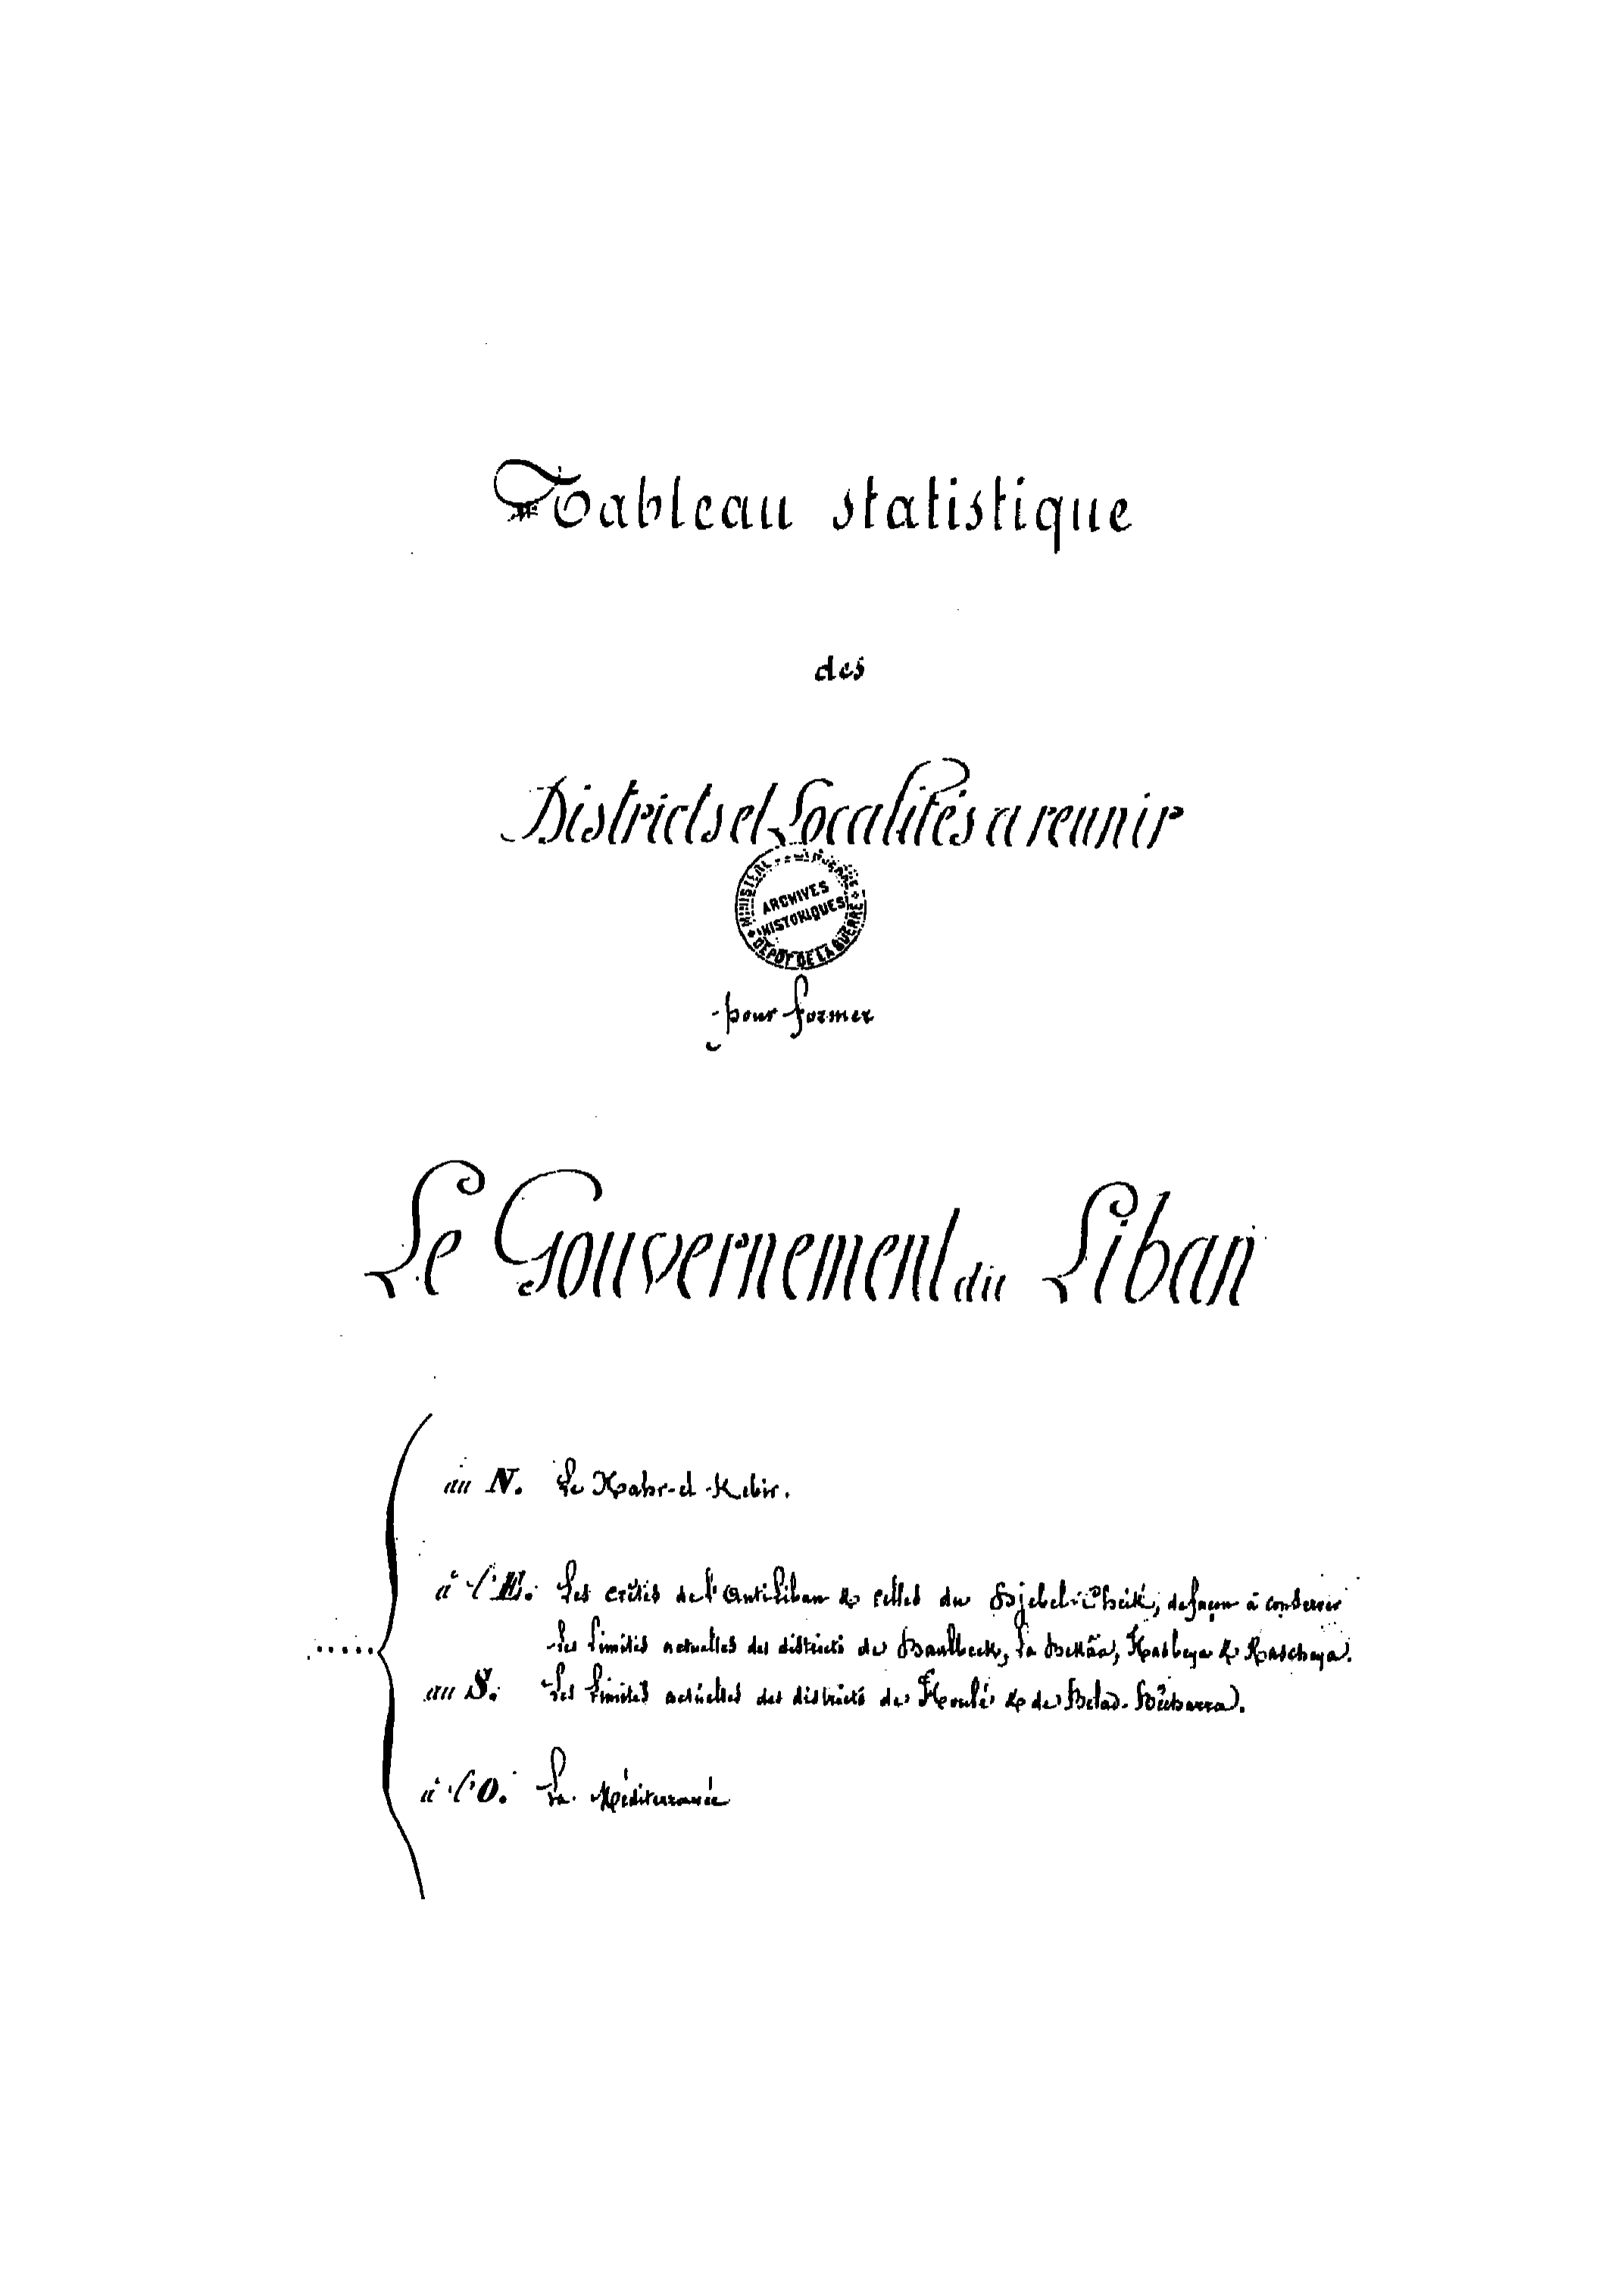 Tableau statistique
des
Districts et Localités a reunir
ARCHIVES
HISTORIQUES
DÉPOT DE LA GUERRE
pour former
Le Gouvernement du Liban
au N. Le Nahr-el-Kebir.
à l'E. Les crêtes de l'AntiLiban & celles du Djebel-Cheik, de façon à conserver
les limites actuelles des districts de Baalbeck, la Bekâa, Hasbeya & Rascheya.
au S. Les limites actuelles des districts de Houlé & de Belad-Bécharra.
à l'O. La Méditerranée